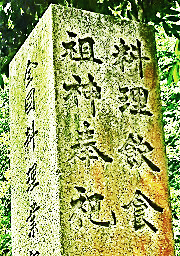 料理飲食
祖神奉祀
全国料理業